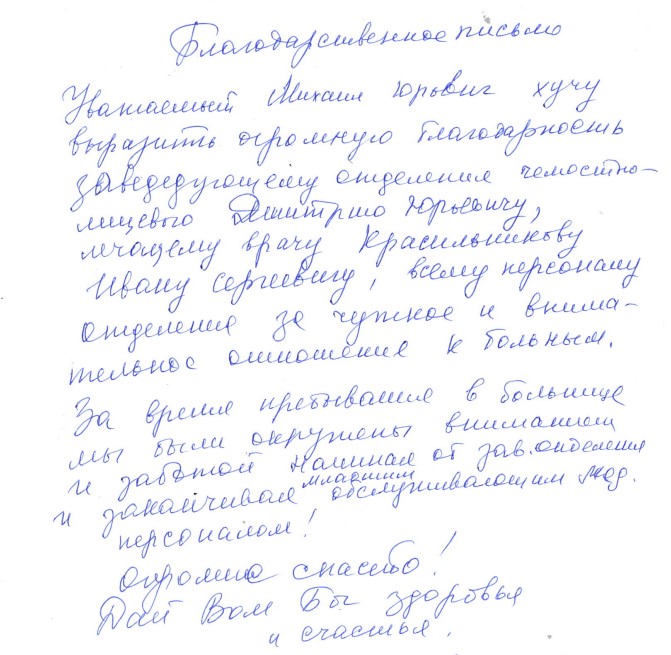 Благодарственное письмо
Уважаемый Михаил Юрьевич хучу
выразить огромную благодарность
заведедующему отделения чемостно-
лицевого Дмитрию Юрьевичу,
лечащему врачу Красильникову
Ивану Сергеевичу, всему персоналу
отделения за чуткое и внима-
тельное отношение к больным.
За время пребывания в больнице
мы были окружены вниманием
и заботой начиная от зав. отделения
и заканчивая младшим обслуживающим мед.
персоналом!
Огромное спасибо!
Дай Вам Бг здоровья
и счастья.